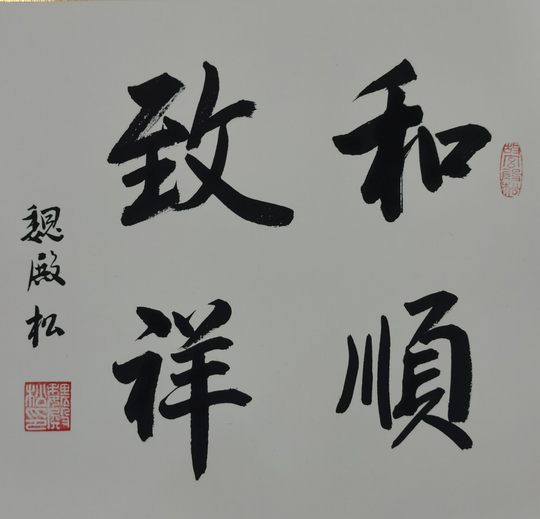 和順
致祥
魏殿松